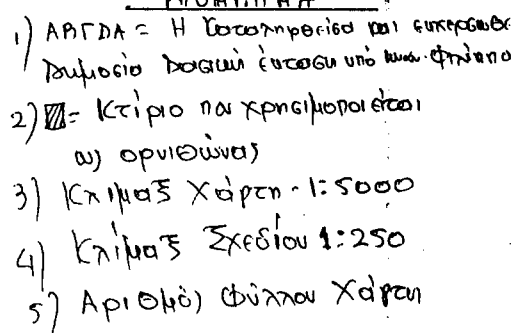 1) ΑΒΓΔΑ = Η και
Δημοσία δασική έκταση υπό
2) = Κτίριο που χρησιμοποιείται
ως ορνιθώνας
3) Κλίμαξ Χάρτη - 1:5000
4) Κλίμαξ Σχεδίου 1:250
5) Αριθμός Φύλλου Χάρτη